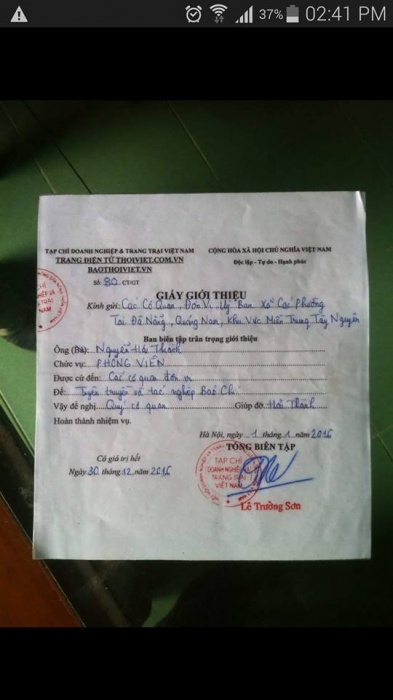 37% 02:41 PM
TẠP CHÍ DOANH NGHIỆP & TRANG TRẠI VIỆT NAM
TRANG ĐIỆN TỬ THOIVIET.COM.VN
BAOTHOIVIET.VN
Số: 80 CT/GT
CỘNG HÒA XÃ HỘI CHỦ NGHĨA VIỆT NAM
Độc lập - Tự do - Hạnh phúc
GIẤY GIỚI THIỆU
Kính gửi: Các Cơ Quan, Đơn Vị, Uỷ Ban Xã Các Phường
Tại Đà Nẵng, Quảng Nam, Khu Vực Miền Trung Tây Nguyên
Ban biên tập trân trọng giới thiệu
Ông (Bà): Nguyễn Hải Thành
Chức vụ: PHÓNG VIÊN
Được cử đến: Các cơ quan đơn vị
Để: Tuyên truyền và tác nghiệp Báo Chí
Vậy đề nghị Quý cơ quan Giúp đỡ: Hải Thành
Hoàn thành nhiệm vụ.
Hà Nội, ngày 1 tháng 1 năm 2016
TỔNG BIÊN TẬP
Có giá trị hết
Ngày 30 tháng 12 năm 2016
TẠP CHÍ
DOANH NGHIỆP
TRANG TRẠI
VIỆT NAM
Lê Trường Sơn